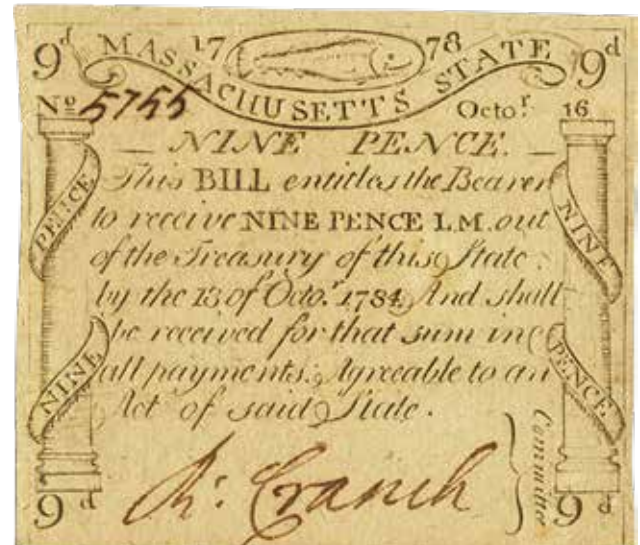 9d 17 78 9d
MASSACHUSETTS STATE
No 5755 Octor. 16
NINE PENCE.
This BILL entitles the Bearer
to receive NINE PENCE L.M. out
of the Treasury of this State
by the 13 of Octo.r 1784, And shall
be received for that sum in
all payments, Agreeable to an
Act of said State.
PENCE
NINE
NINE
PENCE
Committee
Rd: Cranch
9d 9d